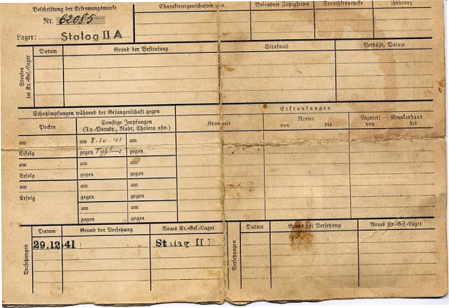 Beschriftung der Erkennungsmarke Charaktereigenschaften Besondere Fähigkeiten Sprachkenntnisse Führung
Nr. 62085
Lager: Stalag II A
Strafen im Kr.-Gef.-Lager Datum Grund der Bestrafung Strafmaß Verbüßt, Datum
Schutzimpfungen während der Gefangenschaft gegen Erkrankungen
Pocken Sonstige Impfungen Krankheit Revier Lazarett – Krankenhaus
(Ty.-Paraty., Ruhr, Cholera usw.) von bis von bis
am am 8.10.41 am
Erfolg gegen Typhus gegen
am am am
Erfolg gegen gegen
am am am
Erfolg gegen gegen
am am
gegen gegen
Versetzungen Datum Grund der Versetzung Neues Kr.-Gef.-Lager Versetzungen Datum Grund der Versetzung Neues Kr.-Gef.-Lager
29.12.41 Stalag II